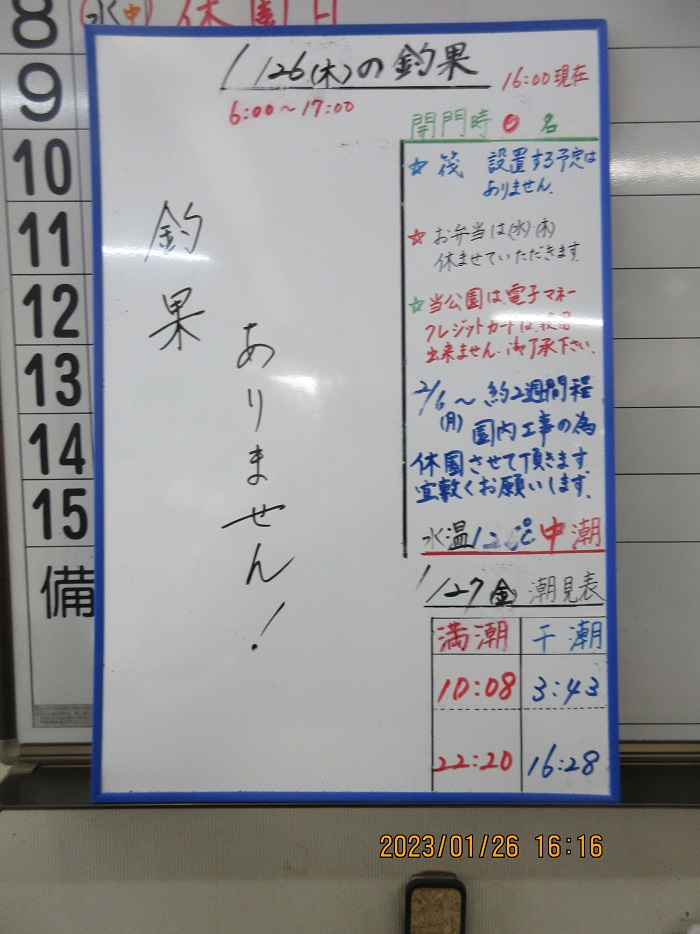 8 (水) 休園日
9
10
11
12
13
14
15
備
1/26(木)の釣果
16:00現在
6:00～17:00
開門時 0 名
釣果
ありません!
☆ 筏 設置する予定は
ありません。
☆ お弁当は(水)・(木)
休ませていただきます
☆ 当公園は、電子マネー
クレジットカードは、
出来ません。御了承下さい。
2/6～約2週間程
(月) 園内工事の為
休園させて頂きます。
宜敷くお願いします。
水温 12.6℃ 中潮
1/27 金 潮見表
満潮 干潮
10:08 3:43
22:20 16:28
2023/01/26 16:16